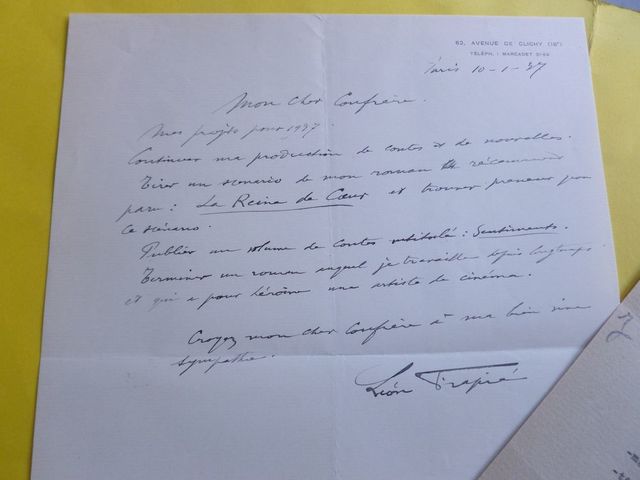 62, AVENUE DE CLICHY (18e)
TÉLÉPH. : MARCADET
Paris 10-1-37
Mon cher Confrère.
Mes projets pour 1937.
Continuer ma production de contes et de nouvelles.
Tirer un scenario de mon roman récemment
paru : La Reine de Cœur et trouver preneur pour
ce scénario.
Publier un volume de Contes intitulé : Sentiments.
Terminer un roman auquel je travaille depuis longtemps
et qui a pour héroïne une artiste de cinéma.
Croyez mon cher Confrère à ma bien vive
sympathie.
Léon Frapié